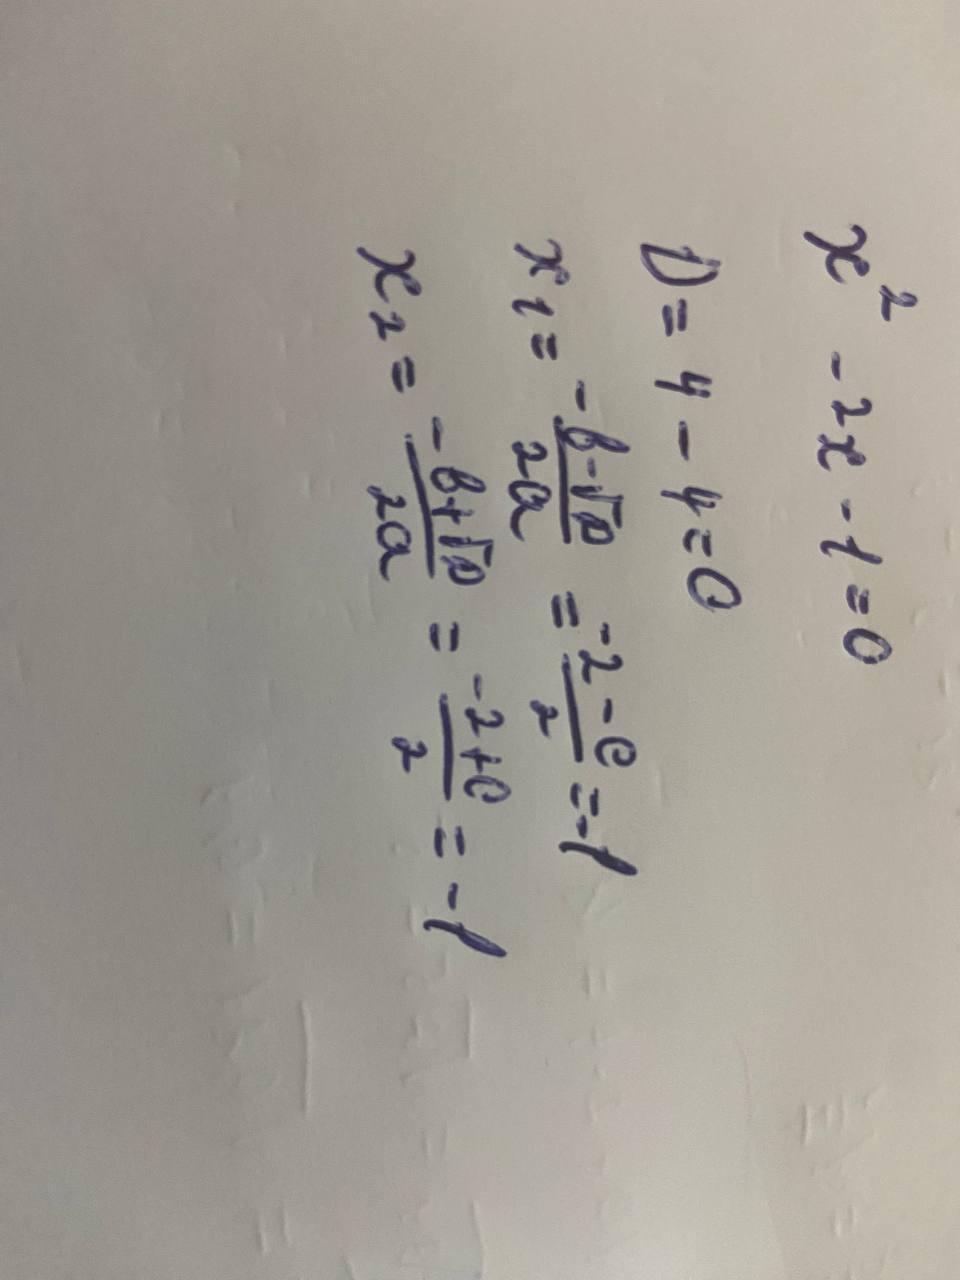 x² - 2x - 1 = 0
D = 4 - 4 = 0
x₁ = (-b - √D)/2a = (-2 - 0)/2 = -1
x₂ = (-b + √D)/2a = (-2 + 0)/2 = -1